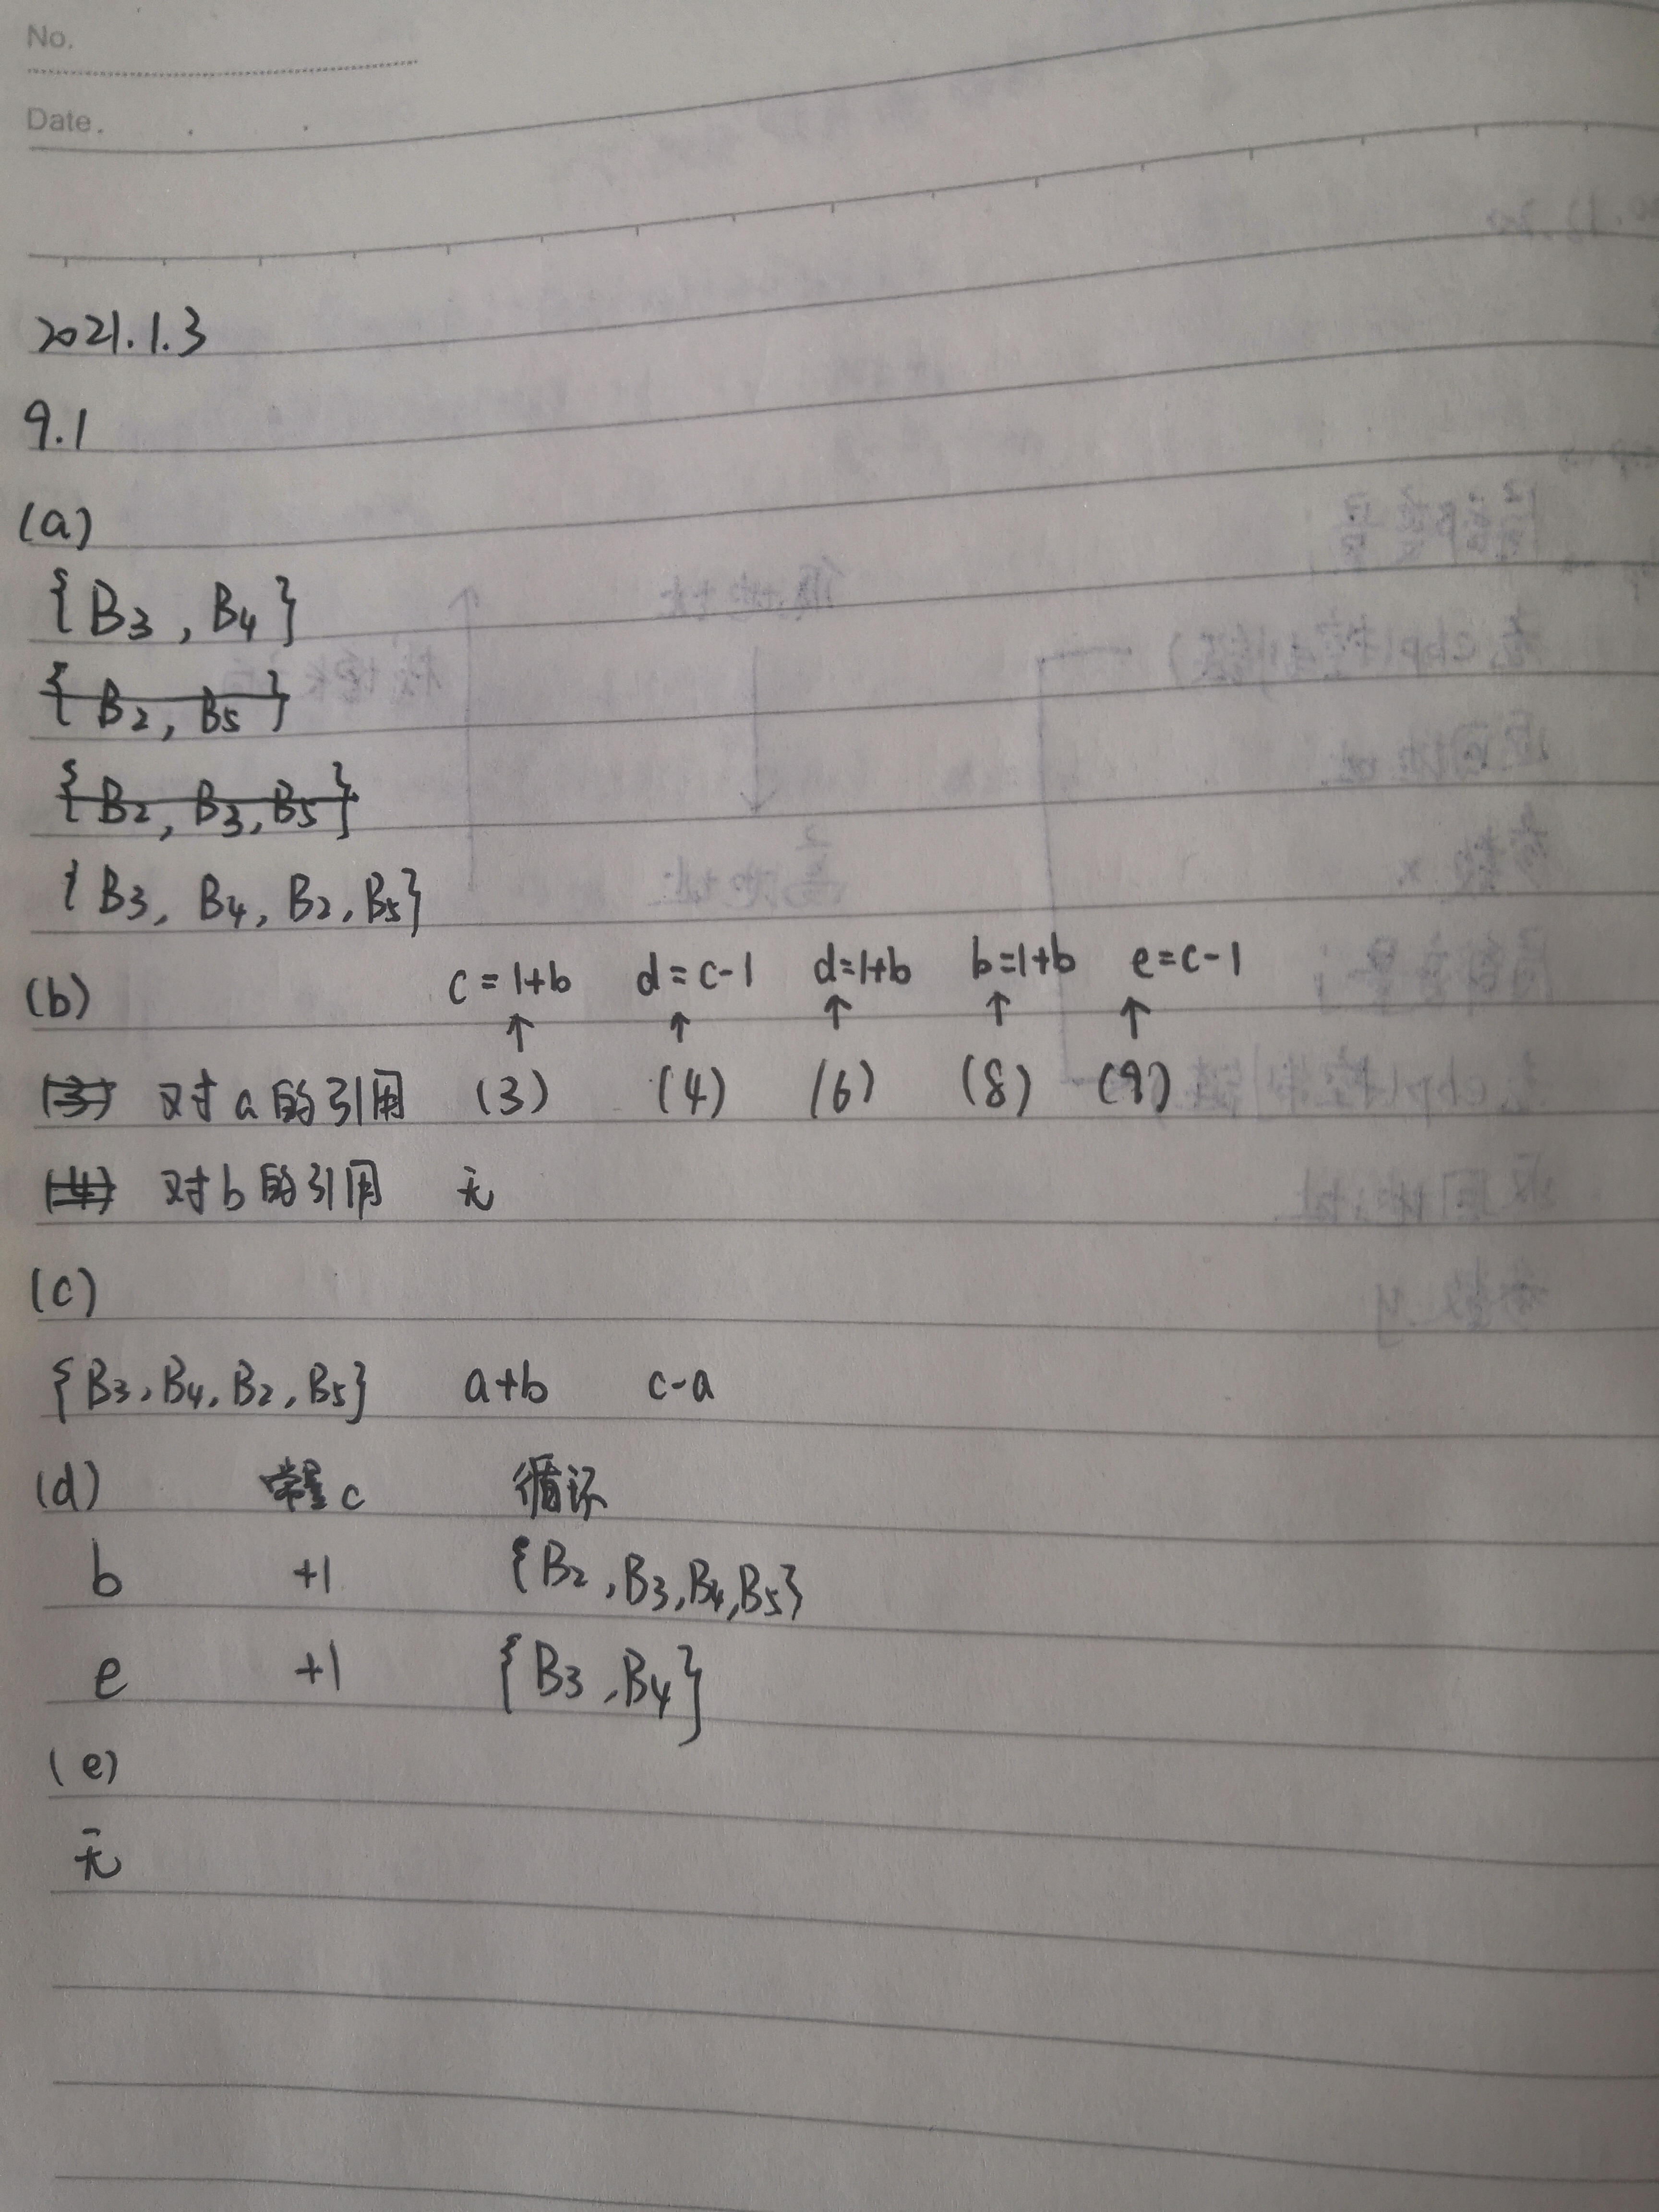 No.
Date.
2021.1.3
9.1
(a)
{B3, B4}
{B2, B5}
{B2, B3, B5}
{B3, B4, B2, B5}
(b) c=1+b d=c-1 d=1+b b=1+b e=c-1
↑ ↑ ↑ ↑ ↑
(3) 对a的引用 (3) (4) (6) (8) (9)
(4) 对b的引用 无
(c)
{B3, B4, B2, B5} a+b c-a
(d) 常量c 循环
b +1 {B2, B3, B4, B5}
e +1 {B3, B4}
(e)
无